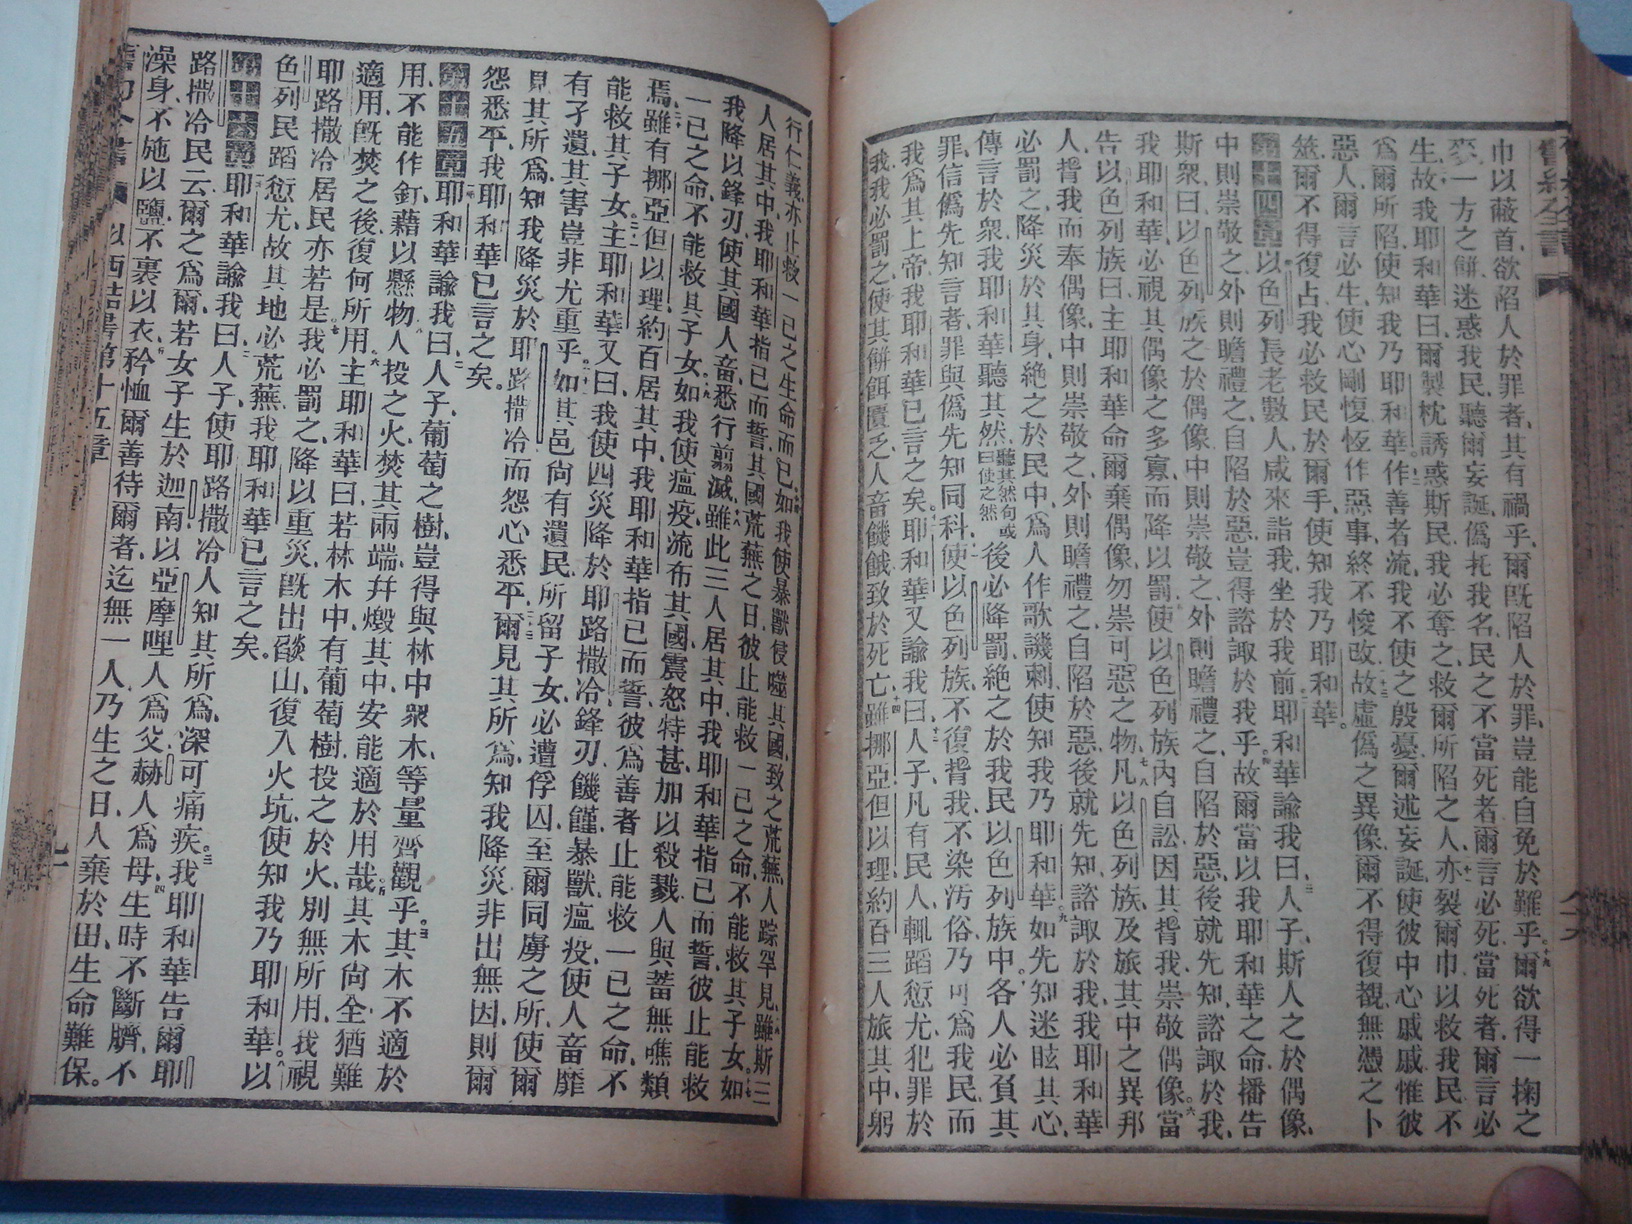 巾以蔽首、欲陷人於罪者、其有禍乎、爾旣陷人於罪、豈能自免於難乎、十九爾欲得一掬之
麥、一方之餅、迷惑我民、聽爾妄誕、僞托我名、民之不當死者、爾言必死、當死者、爾言必
生、故我耶和華曰、爾製枕誘惑斯民、我必奪之、救爾所陷之人、亦裂爾巾、以救我民、不
爲爾所陷、使知我乃耶和華。作善者流、我不使之殷憂、爾述妄誕、使彼中心戚戚、惟彼
惡人、爾言必生、使心剛愎、恆作惡事、終不悛改、故虛僞之異像、爾不得復覩、無憑之卜
筮、爾不得復占、我必救民於爾手、使知我乃耶和華。
第十四章以色列長老數人、咸來詣我、坐於我前、耶和華諭我曰、人子、斯人之於偶像、
中則崇敬之、外則瞻禮之、自陷於惡、豈得諮諏於我乎、故爾當以我耶和華之命、播告
斯衆曰、以色列族之於偶像、中則崇敬之、外則瞻禮之、自陷於惡、後就先知、諮諏於我、
我耶和華、必視其偶像之多寡、而降以罰、使以色列族、內自訟、因其揹我、崇敬偶像、當
告以色列族曰、主耶和華命爾棄偶像、勿崇可惡之物、凡以色列族、及旅其中之異邦
人、揹我而奉偶像、中則崇敬之、外則瞻禮之、自陷於惡、後就先知、諮諏於我、我耶和華
必罰之、降災於其身、絕之於民中、爲人作歌譏刺、使知我乃耶和華、如先知迷眩其心、
傳言於衆、我耶和華聽其然、聽其然句或曰使之然後必降罰、絕之於我民以色列族中。各人必負其
罪、信僞先知言者、罪與僞先知同科、使以色列族、不復揹我、不染汚俗、乃可爲我民、而
我爲其上帝、我耶和華已言之矣、耶和華又諭我曰、人子、凡有民人、輒蹈愆尤、犯罪於
我、我必罰之、使其餅餌匱乏、人畜饑餓、致於死亡、雖挪亞但以理約百三人、旅其中、躬
行仁義、亦止救一己之生命而已、如我使暴獸侵噬其國、致之荒蕪、人踪罕見、雖斯三
人居其中、我耶和華指己而誓、其國荒蕪之日、彼止能救一己之命、不能救其子女、如
我降以鋒刃、使其國人畜、悉行翦滅、雖此三人居其中、我耶和華指己而誓、彼止能救
一己之命、不能救其子女、如我使瘟疫流布其國、震怒特甚、加以殺戮、人與蓄無噍類
焉、雖有挪亞但以理約百居其中、我耶和華指己而誓、彼爲善者、止能救一己之命、不
能救其子女、主耶和華又曰、我使四災降於耶路撒冷、鋒刃饑饉暴獸瘟疫、使人畜靡
有孑遺、其害豈非尤重乎、如其邑尙有遺民、所留子女、必遭俘囚、至爾同虜之所、使爾
見其所爲、知我降災於耶路撒冷、而怨心悉平、爾見其所爲、知我降災、非出無因、則爾
怨悉平、我耶和華已言之矣。
第十五章耶和華諭我曰、人子、葡萄之樹、豈得與林中衆木、等量齊觀乎。其木不適於
用、不能作釘、藉以懸物、人投之火、焚其兩端、幷燬其中、安能適於用哉、其木尙全、猶難
適用、旣焚之後、復何所用、主耶和華曰、若林木中、有葡萄樹、投之於火、別無所用、我視
耶路撒冷居民亦若是、我必罰之、降以重災、旣出燄山、復入火坑、使知我乃耶和華。以
色列民蹈愆尤、故其地必荒蕪、我耶和華已言之矣。
第十六章耶和華諭我曰、人子、使耶路撒冷人知其所爲、深可痛疾、我耶和華告爾耶
路撒冷民云、爾之爲爾、若女子生於迦南、以亞摩哩人爲父、赫人爲母、生時不斷臍、不
澡身、不施以鹽、不裹以衣、矜恤爾善待爾者、迄無一人、乃生之日、人棄於田、生命難保。
以西結書第十五章